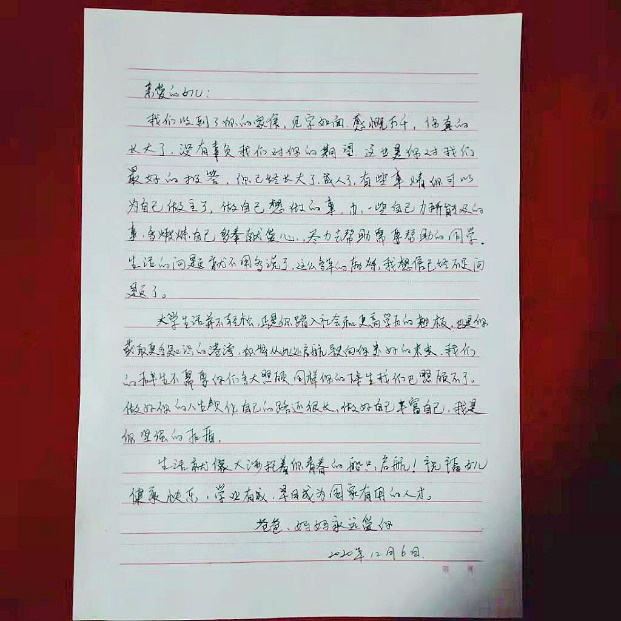 亲爱的女儿:
我们收到了你的家信,见字如面,感慨万千,你真的
长大了,没有辜负我们对你的期望,这也是你对我们
最好的报答,你已经长大了,成人了,有些事情你可以
为自己做主了,做自己想做的事,力所能及的
事,多锻炼自己多奉献爱心,尽力去帮助需要帮助的同学.
生活的问题就不用多说了,这么多年的我想信已经不是问
题了。
大学生活并不轻松,正是你踏入社会和更高学府的跳板,也是你
获取更多知识的港湾,从此启航驶向你美好的未来,我们
的不需要你们多大照顾,同样你的我们已照顾不了,
做好你的人生自己的路还很长,做好自己丰富自己,我是
你坚强的
生活就像大海托着你青春的船只,启航!祝愿女儿
健康快乐,学业有成,早日成为国家有用的人才。
爸爸、妈妈永远爱你
2020年12月6日.